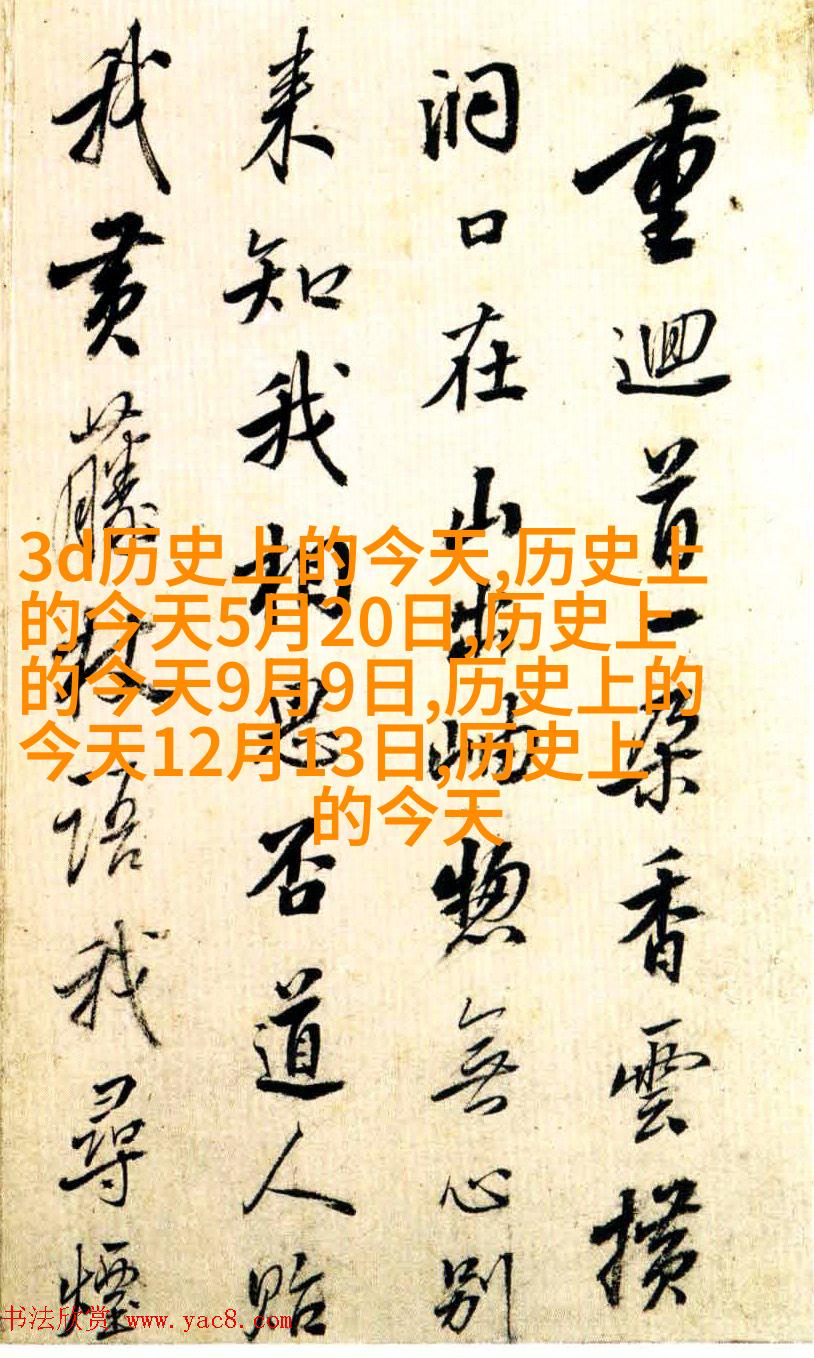 重迴首一朵香雲横
洞口在山出岫惣無心别
来知我相思否道人貽
我黄藤杖語我尋煙
3d历史上的今天,历史上
的今天5月20日,历史上
的今天9月9日,历史上的
今天12月13日,历史上
的今天
书法欣赏 www.yac8.com